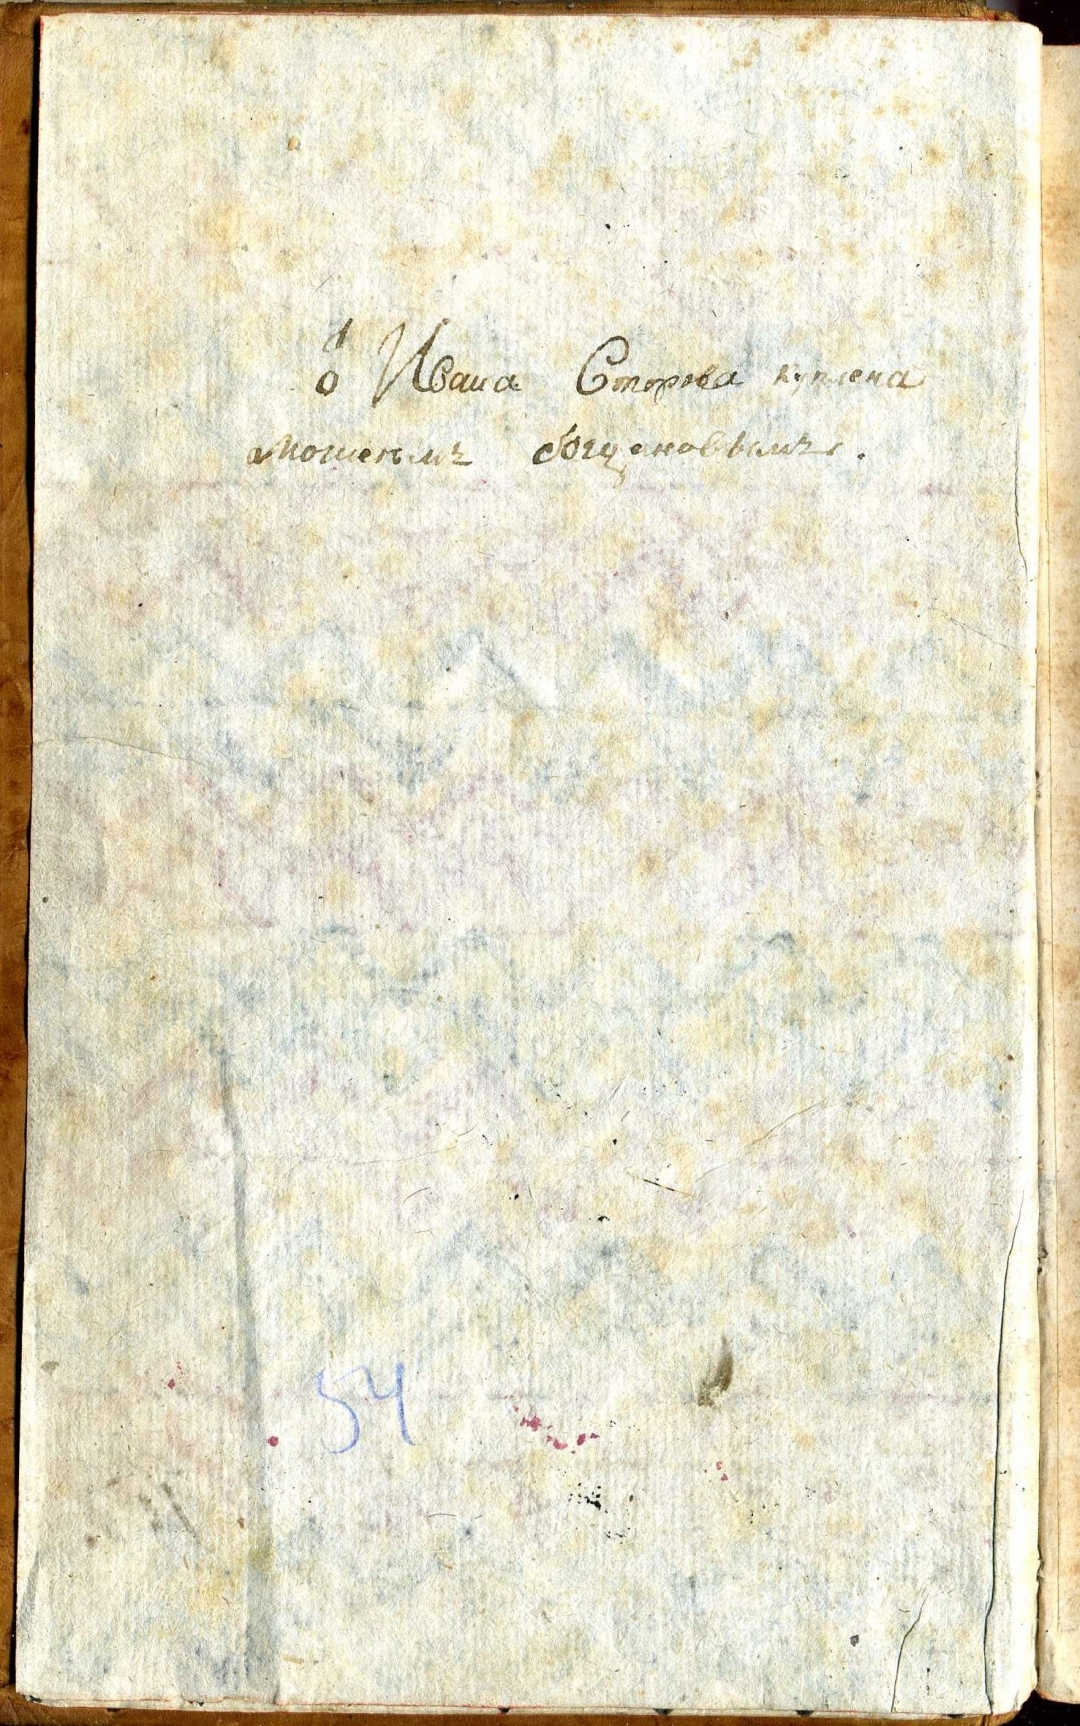 о҆т Ивана Сторова куплена
Мосеемъ Богдановымъ.
54